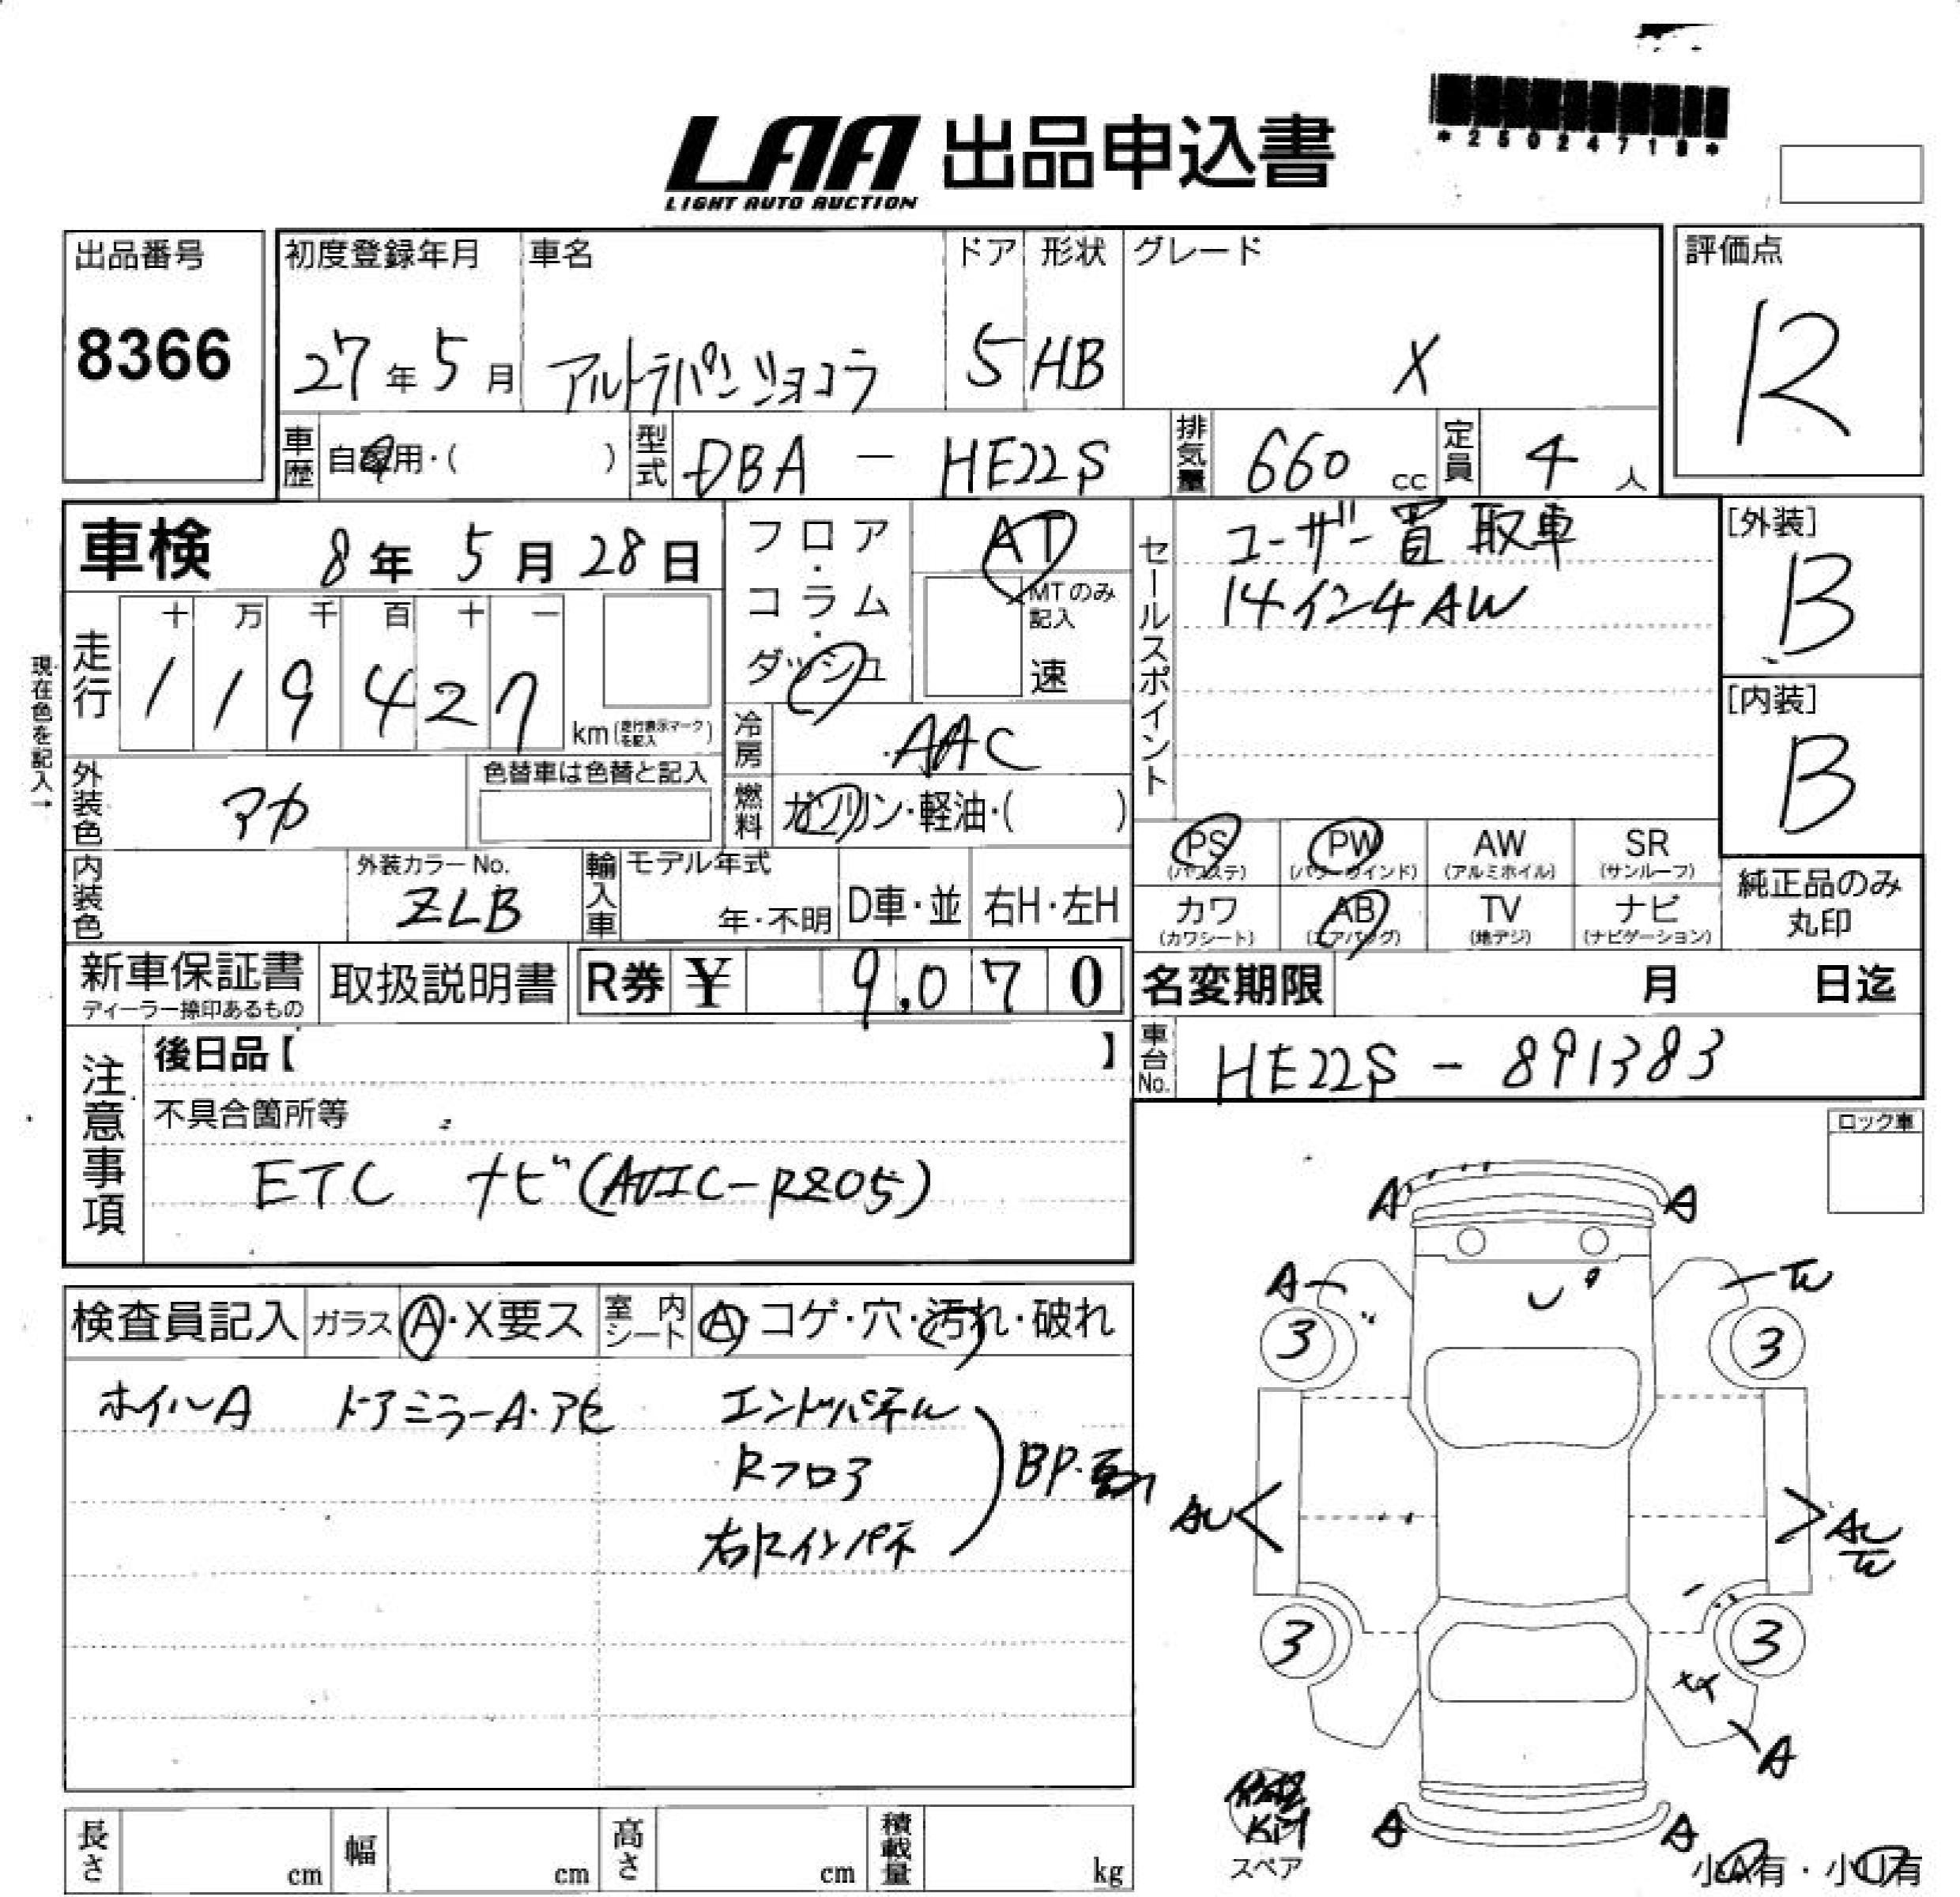 *2502471?*
LAA 出品申込書
LIGHT AUTO AUCTION
出品番号
8366
初度登録年月 車名 ドア 形状 グレード
27年5月 アルトラパンショコラ 5 HB X
評価点
R
車歴 自家用・( ) 型式 DBA - HE22S 排気量 660 cc 定員 4 人
車検 8年 5月 28日
フロア・コラム・ダッシュ
AT
MTのみ記入
速
セールスポイント
ユーザー買取車
14インチAW
[外装]
B
[内装]
B
現在色を記入→
走行
十 万 千 百 十 一
1 1 9 4 2 7
km(走行表示マークを記入)
冷房 AAC
外装色 アカ
色替車は色替と記入
燃料 ガソリン・軽油・( )
PS (パワステ) PW (パワーウインド) AW (アルミホイル) SR (サンルーフ)
カワ (カワシート) AB (エアバッグ) TV (地デジ) ナビ (ナビゲーション)
純正品のみ丸印
内装色
外装カラーNo.
ZLB
輸入車 モデル年式
年・不明 D車・並 右H・左H
新車保証書
ディーラー捺印あるもの
取扱説明書
R券 ¥ 9,070
名変期限 月 日迄
車台No. HE22S - 891383
注意事項
後日品【 】
不具合箇所等
ETC ナビ(AVIC-RZ05)
ロック車
検査員記入 ガラス A・X要ス 室内シート A・コゲ・穴・汚れ・破れ
ホイルA ドアミラーA・アセ エンドパネル
Rフロア
右Rインパネ
BP.
A A
A
3 3
AU AU
3 3
A
A A
スペア
小A有・小U有
長さ cm 幅 cm 高さ cm 積載量 kg